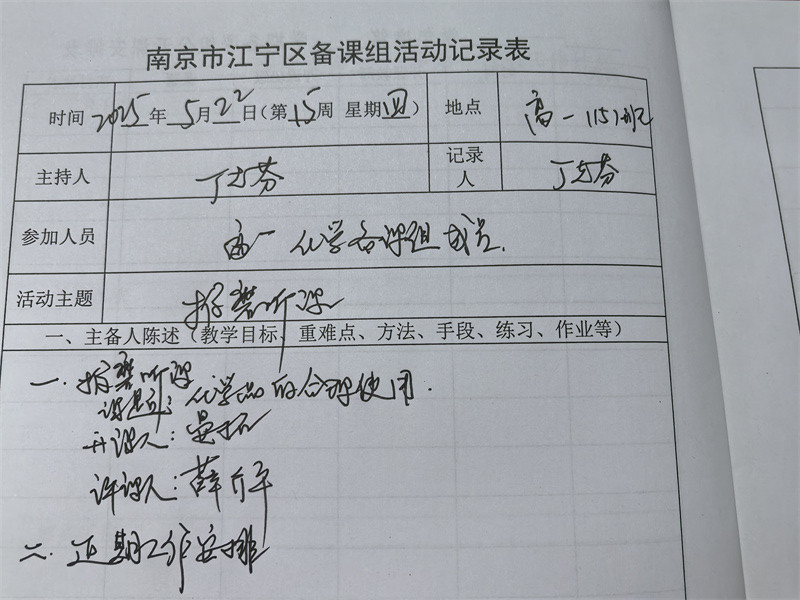 南京市江宁区备课组活动记录表
时间 2025年5月22日(第15周 星期四) 地点 高一(15)班
主持人 丁志芬 记录人 丁志芬
参加人员 高一化学备课组成员.
活动主题 指导听课
一、主备人陈述(教学目标、重难点、方法、手段、练习、作业等)
一.
听课
课题: 化学品的合理使用.
开课人:
评课人: 薛
二. 近期工作安排